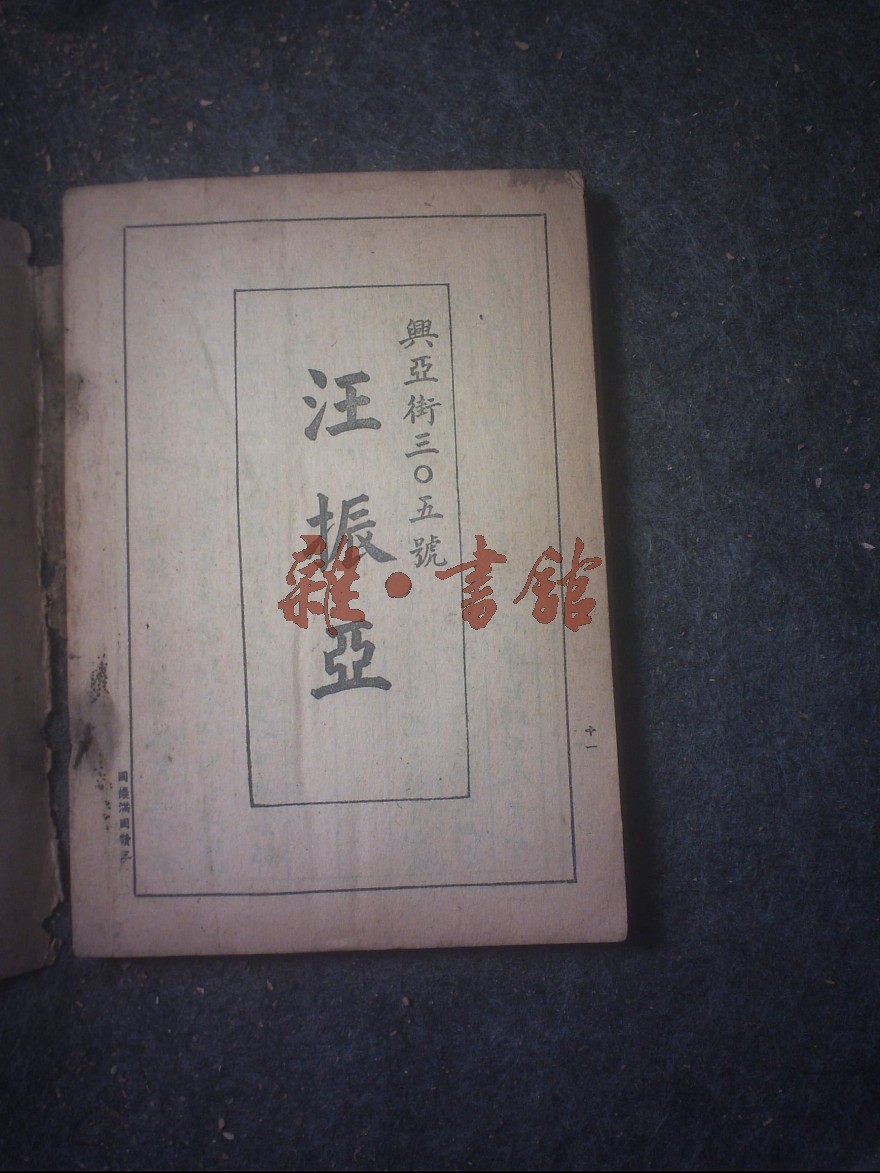 興亞街三〇五號
汪振亞
雜·書館
十一